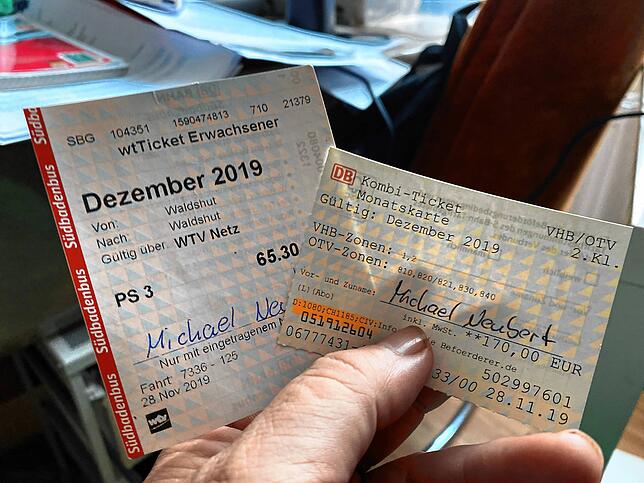 Südbadenbus
Südbadenbus
Südbadenbus
Südbadenbus
SBG 104351 1590474813 710 21379
wtTicket Erwachsener
Dezember 2019
Von: Waldshut
Nach: Waldshut
Gültig über: WTV Netz
65.30
PS 3
Michael
Nur mit eingetragenem
Fahrt 7336 - 125
28 Nov 2019
wtv
DB Kombi-Ticket VHB/OTV
Monatskarte 2.Kl.
Gültig: Dezember 2019
VHB-Zonen: 1,2
OTV-Zonen: 810,820/821,830,840
Vor- und Zuname: Michael Neubert
(L)(Abo)
inkl. MwSt. **170,00 EUR
D:1080;CH1185;CIV:Info
Befoerderer.de
051912604
502997601
06777431
33/00 28.11.19